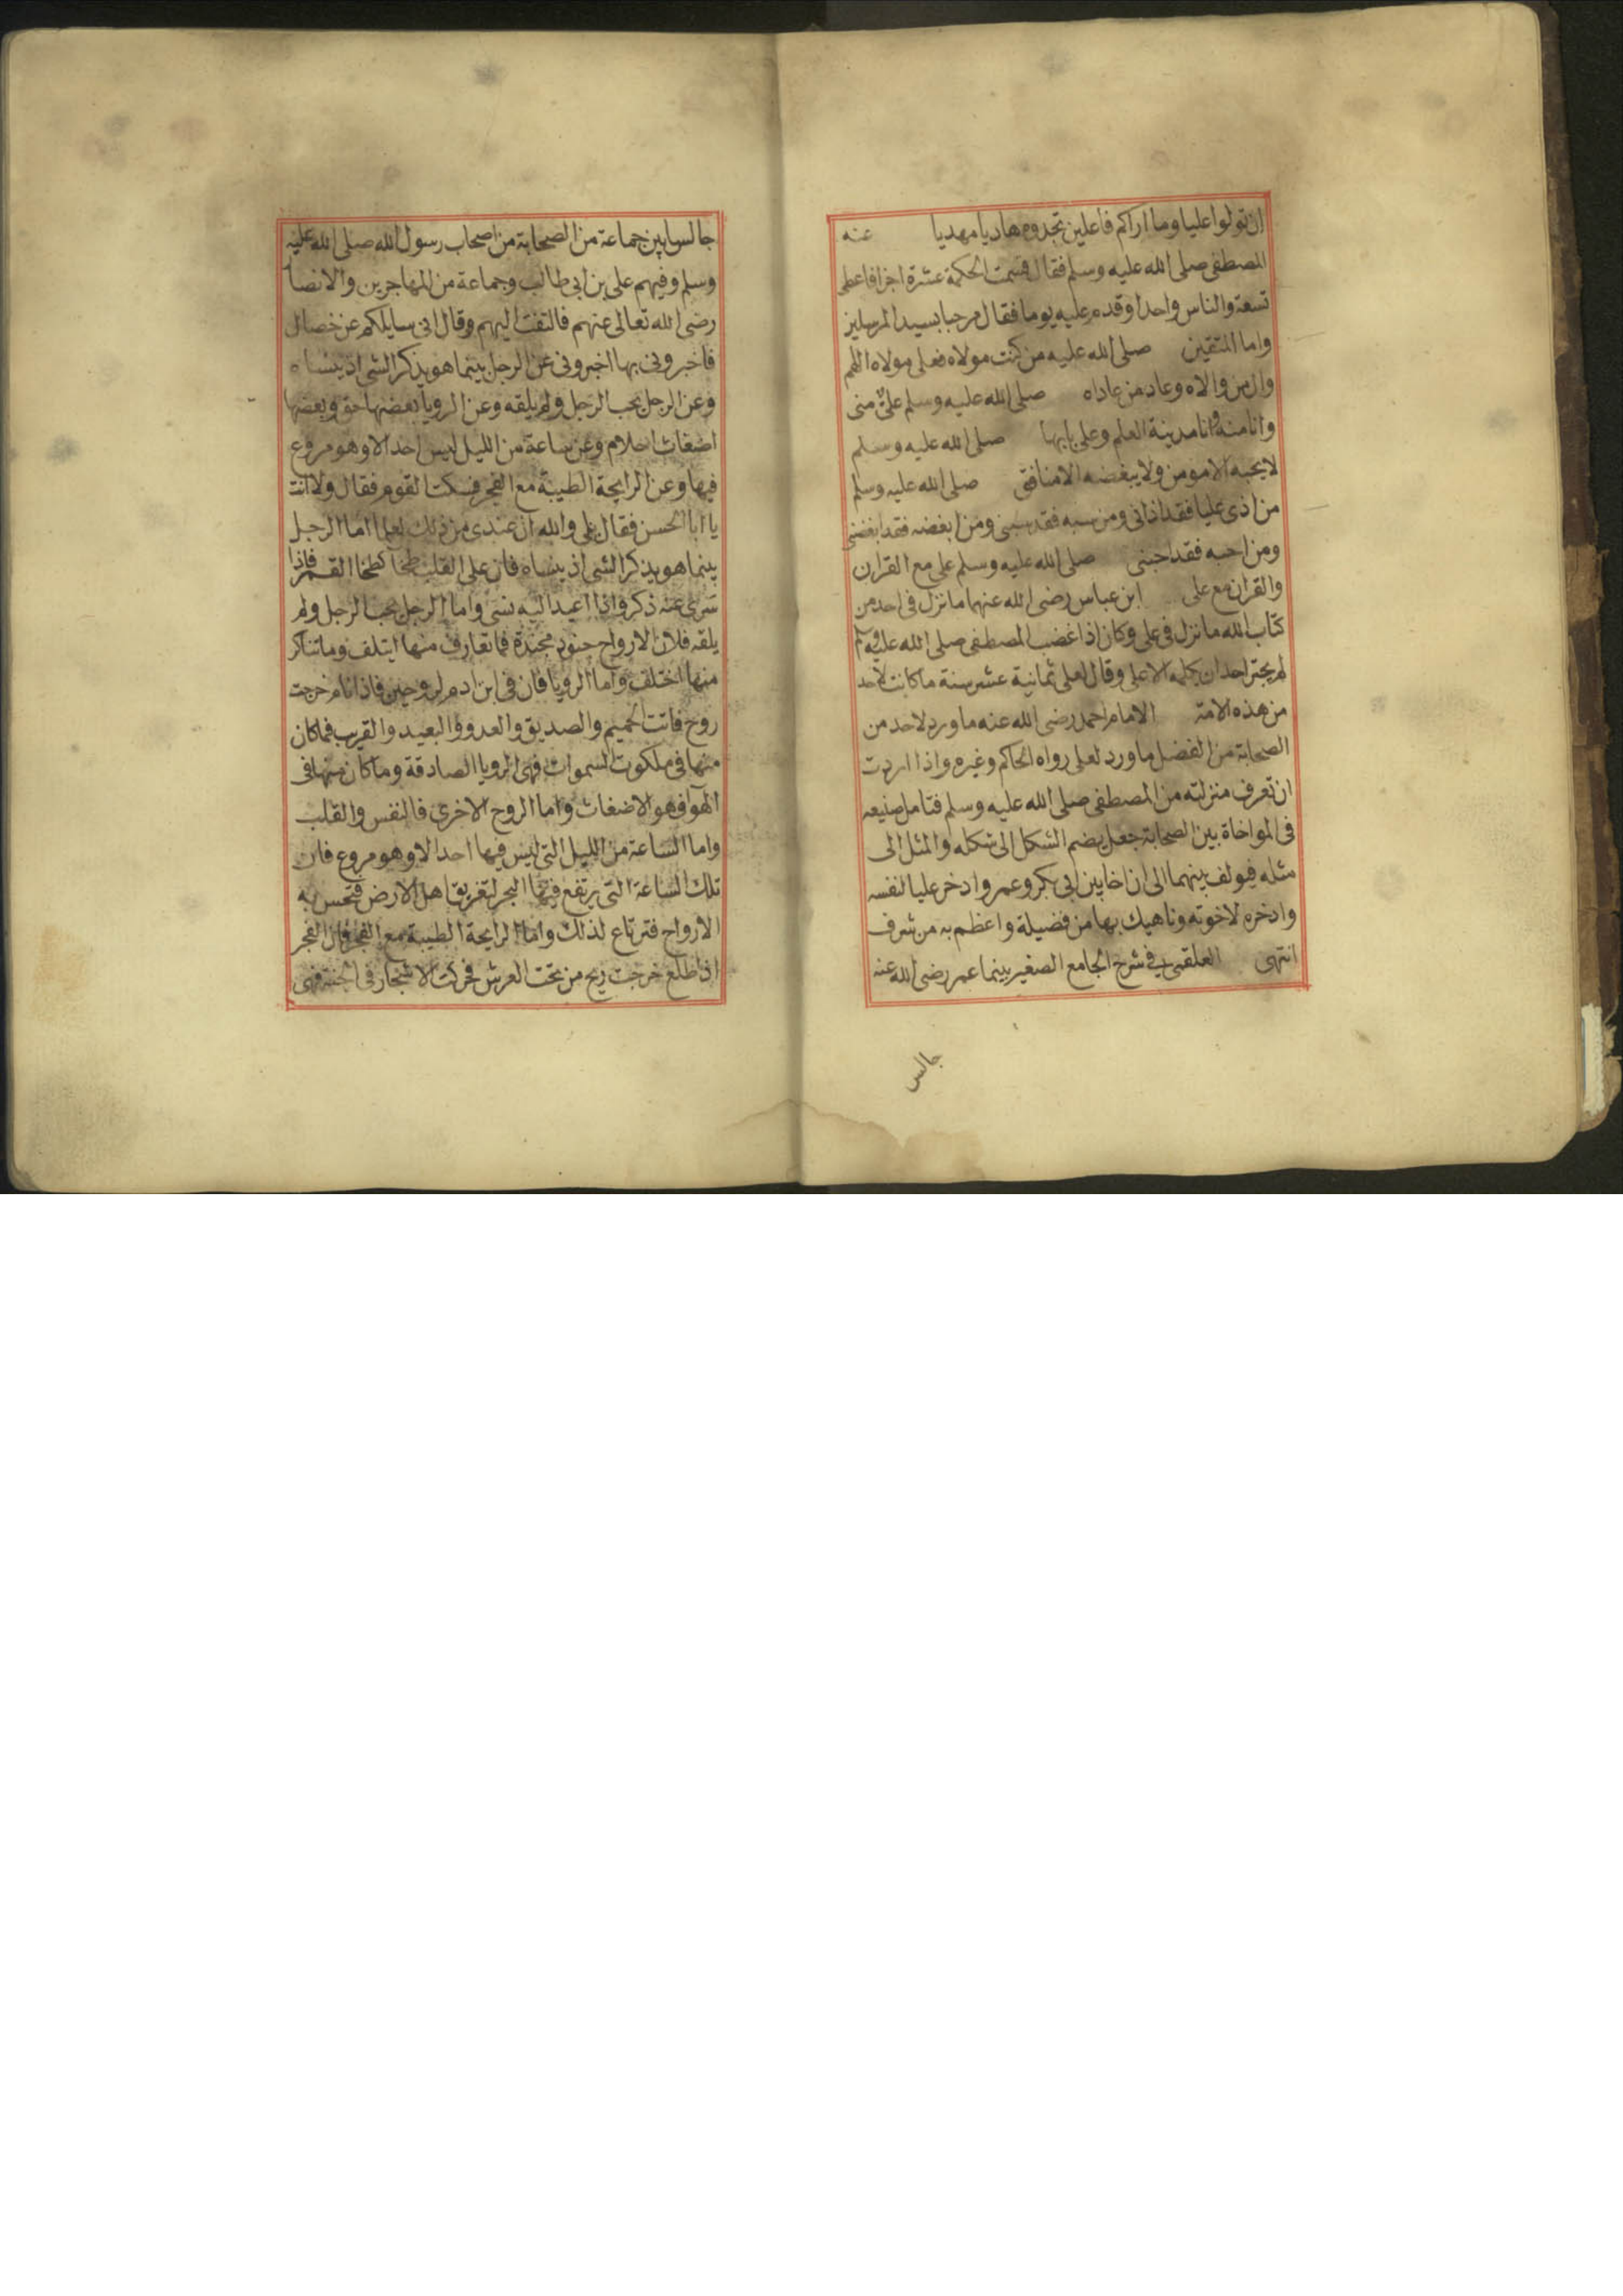 ان تولوا عليا وما اراكم فاعلين تجدوه هاديا مهديا عنه
المصطفى صلى الله عليه وسلم فقال قسمت الحكمة عشرة اجزا فاعطى
تسعة والناس واحدا وقدم عليه يوما فقال مرحبا بسيد المرسلين
واما المتقين صلى الله عليه من كنت مولاه فعلى مولاه اللهم
وال من والاه وعاد من عاداه صلى الله عليه وسلم علىٌّ منى
وانا منه وانا مدينة العلم وعلى بابها صلى الله عليه وسلم
لا يحبه الا مومن ولا يبغضه الا منافق صلى الله عليه وسلم
من اذى عليا فقد اذانى ومن سبه فقد سبنى ومن ابغضه فقد ابغضنى
ومن احبه فقد احبنى صلى الله عليه وسلم على مع القران
والقران مع على ابن عباس رضى الله عنهما ما نزل فى احد من
كتاب الله ما نزل فى على وكان اذا غضب المصطفى صلى الله عليه وسلم
لم يجتر احد ان يكلمه الا على وقال لعلى ثمانية عشر سنة ما كانت لاحد
من هذه الامة الامام احمد رضى الله عنه ما ورد لاحد من
الصحابة من الفضل ما ورد لعلى رواه الحاكم وغيره واذا اردت
ان تعرف منزلته من المصطفى صلى الله عليه وسلم فتامل صنيعه
فى المواخاة بين الصحابة جعل يضم الشكل الى شكله والمثل الى
مثله فيولف بينهما الى ان اخا بين ابى بكر وعمر وادخر عليا لنفسه
وادخره لاخوته وناهيك بها من فضيلة واعظم به من شرف
انتهى العلقمى فى شرح الجامع الصغير بينما عمر رضى الله عنه
جالس
جالسا بين جماعة من الصحابة من اصحاب رسول الله صلى الله عليه
وسلم وفيهم على بن ابى طالب وجماعة من المهاجرين والانصا
رضى الله تعالى عنهم فالتفت اليهم وقال انى سايلكم عن خصال
فاخبرونى بها اخبرونى عن الرجل بينما هو يذكر الشى اذ ينساه
وعن الرجل يحب الرجل ولم يلقه وعن الرويا بعضها حق وبعضها
اضغاث احلام وعن ساعة من الليل ليس احد الا وهو مروع
فيها وعن الرايحة الطيبة مع الفجر فسكت القوم فقال ولا انت
يا ابا الحسن فقال على والله ان عندى من ذلك لعلما اما الرجل
بينما هو يذكر الشى اذ ينساه فان على القلب طخا كطخا القمر فاذا
سرى عنه ذكر واذا اعيد اليه نسى واما الرجل يحب الرجل ولم
يلقه فلان الارواح جنود مجندة فما تعارف منها ايتلف وما تناكر
منها اختلف واما الرويا فان فى ابن ادم لروحين فاذا نام خرجت
روح فاتت الحميم والصديق والعدو والبعيد والقريب فما كان
منها فى ملكوت السموات فهى الرويا الصادقة وما كان منها فى
الهوآ فهو الاضغاث واما الروح الاخرى فالنفس والقلب
واما الساعة من الليل التى ليس فيها احدا الا وهو مروع فان
تلك الساعة التى يرتفع فيها البحر لتغريق اهل الارض فتحس به
الارواح فترتاع لذلك واما الرايحة الطيبة مع الفجر فان الفجر
اذا طلع خرجت ريح من تحت العرش فحركت الاشجار فى الجنة فهى